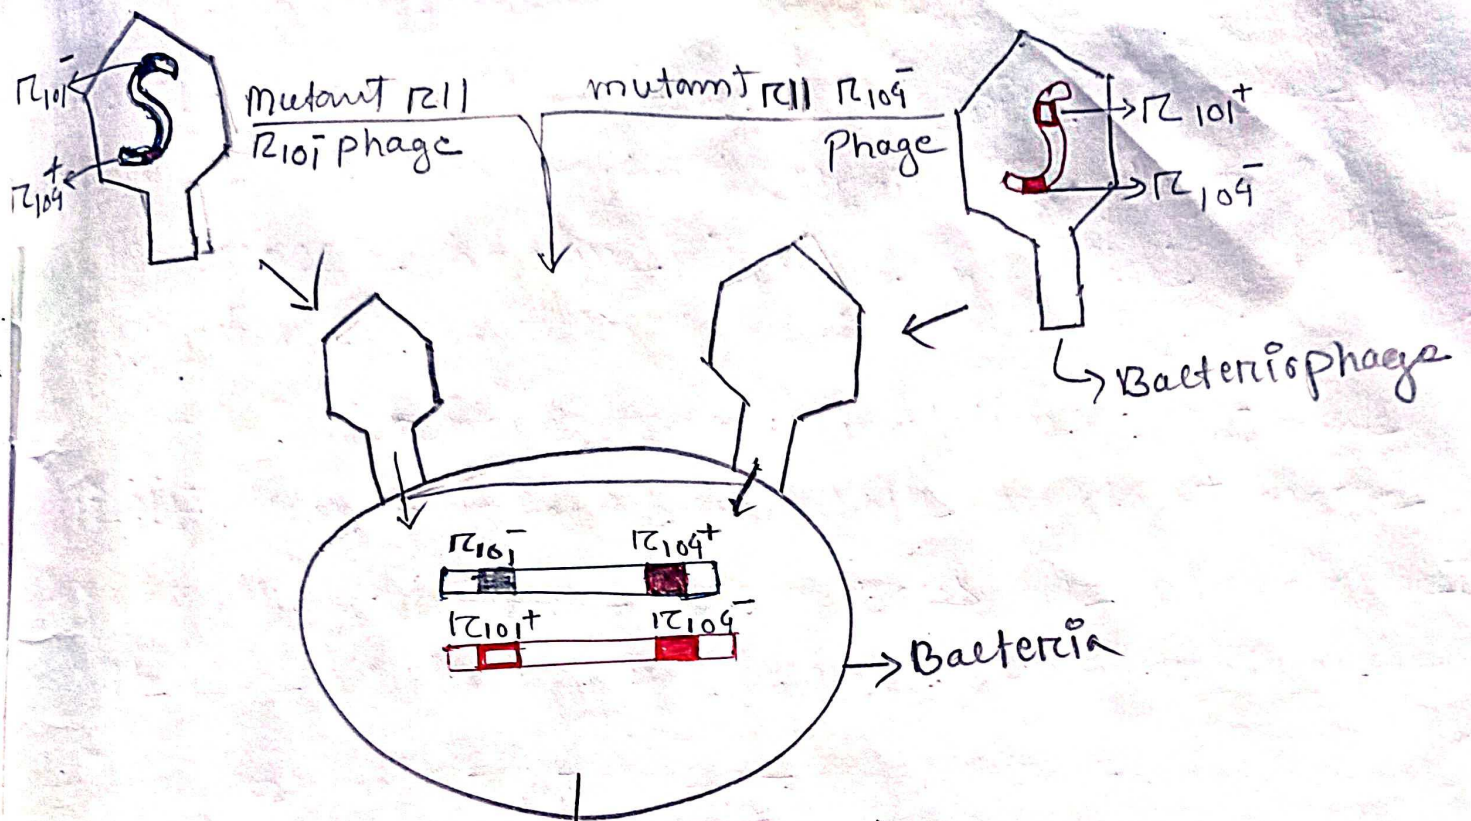 r101⁻
r104⁺
Mutant rII
r101⁻ phage
mutant rII r104⁻
Phage
r101⁺
r104⁻
Bacteriophage
r101⁻ r104⁺
r101⁺ r104⁻
Bacteria